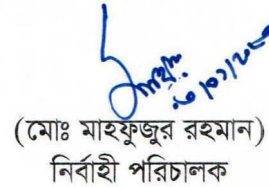 (মোঃ মাহফুজুর রহমান)
নির্বাহী পরিচালক